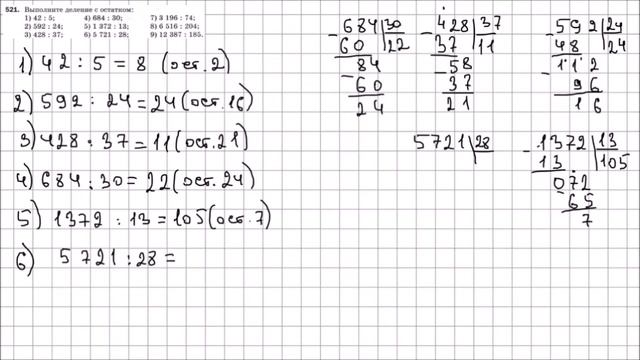 521. Выполните деление с остатком:
1) 42 : 5; 4) 684 : 30; 7) 3 196 : 74;
2) 592 : 24; 5) 1 372 : 13; 8) 6 516 : 204;
3) 428 : 37; 6) 5 721 : 28; 9) 12 387 : 185.
1) 42 : 5 = 8 (ост. 2)
2) 592 : 24 = 24 (ост. 16)
3) 428 : 37 = 11 (ост. 21)
4) 684 : 30 = 22 (ост. 24)
5) 1372 : 13 = 105 (ост. 7)
6) 5721 : 28 =
684 30
- 60 22
84
- 60
24
428 37
- 37 11
58
- 37
21
592 24
- 48 24
112
- 96
16
5721 28
1372 13
- 13 105
072
- 65
7